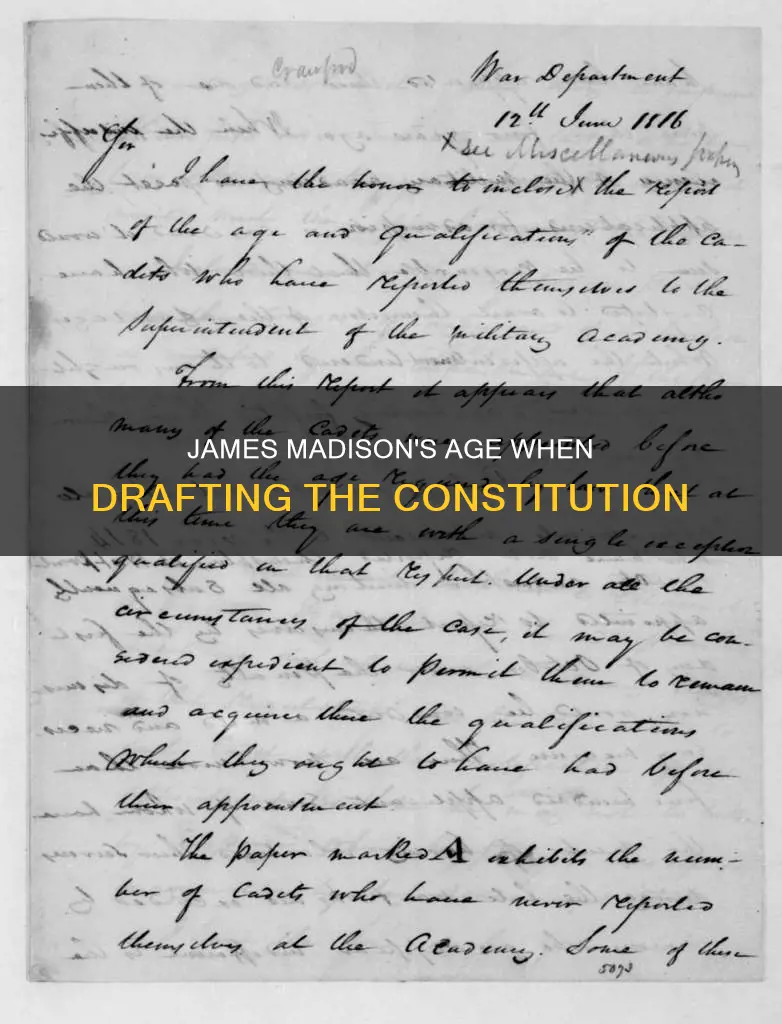 Crawford
War Department
12th June 1816
x see Miscellaneous
Sir
I have the honor to inclose x the report
of the age and qualifications" of the ca-
dets who have reported themselves to the
Superintendent of the military academy.
From this report it appears that altho
many of the Cadets were appointed before
JAMES MADISON'S AGE WHEN
they had the age required by law that at
DRAFTING THE CONSTITUTION
this time they are with a single exception
qualified in that respect. Under all the
circumstances of the case, it may be con-
sidered expedient to permit them to remain
and acquire there the qualifications
which they ought to have had before
their appointment.
The paper marked A exhibits the num-
ber of Cadets who have never reported
themselves at the Academy. Some of these
5093